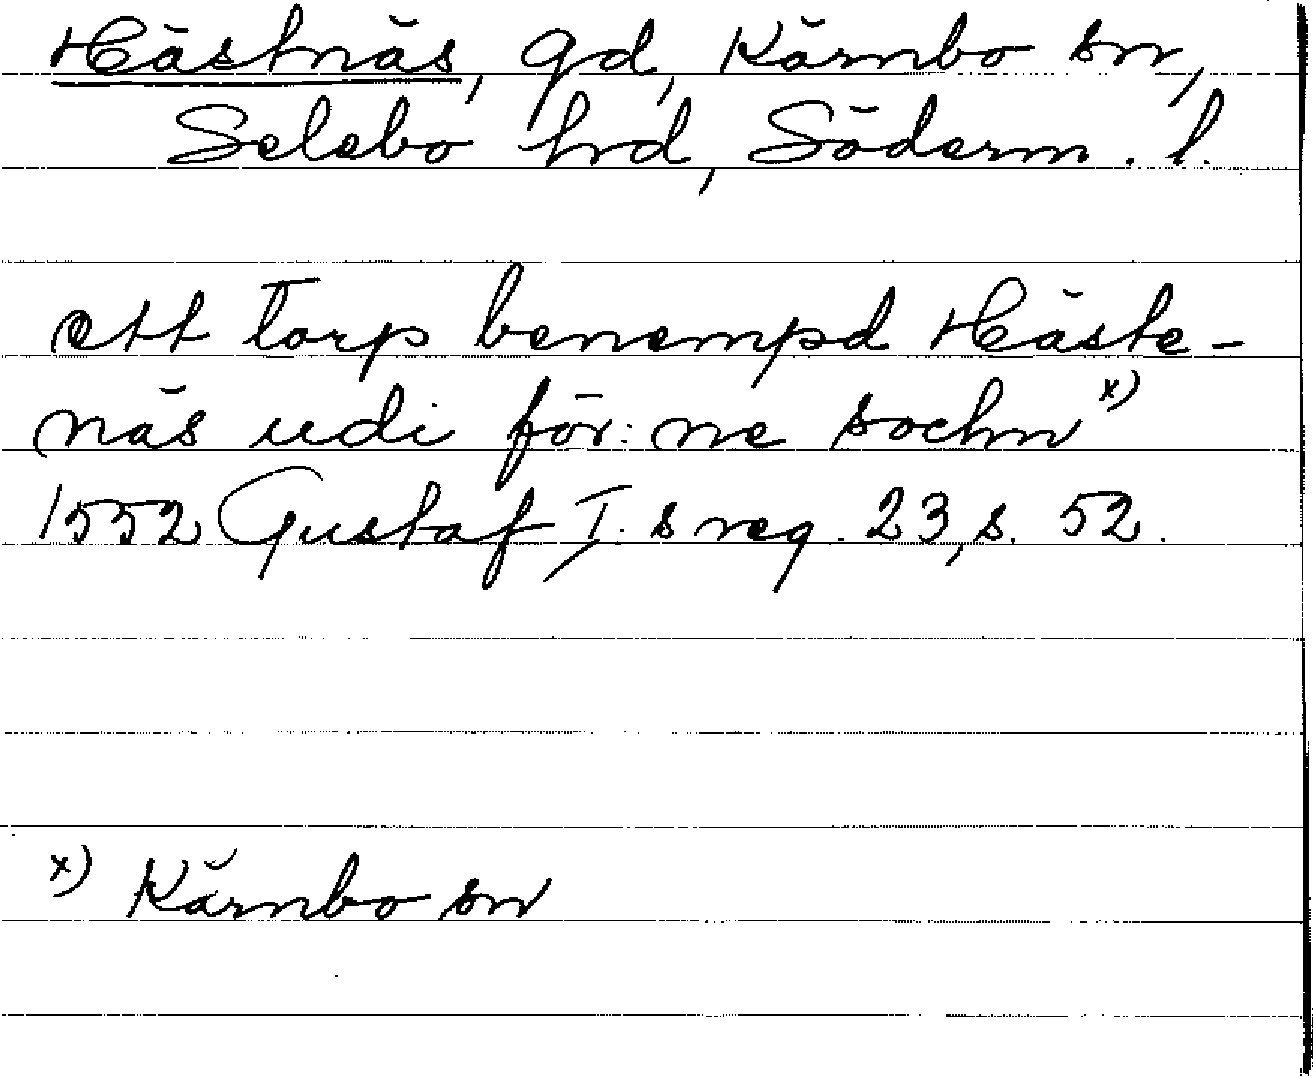 Hästnäs, gd, Kärnbo sn,
Selebo hrd, Söderm. l.
ett Torp benempd Häste-
näs udi för: ne sochn x)
1552 Gustaf I: s reg. 23, s. 52.
x) Kärnbo sn